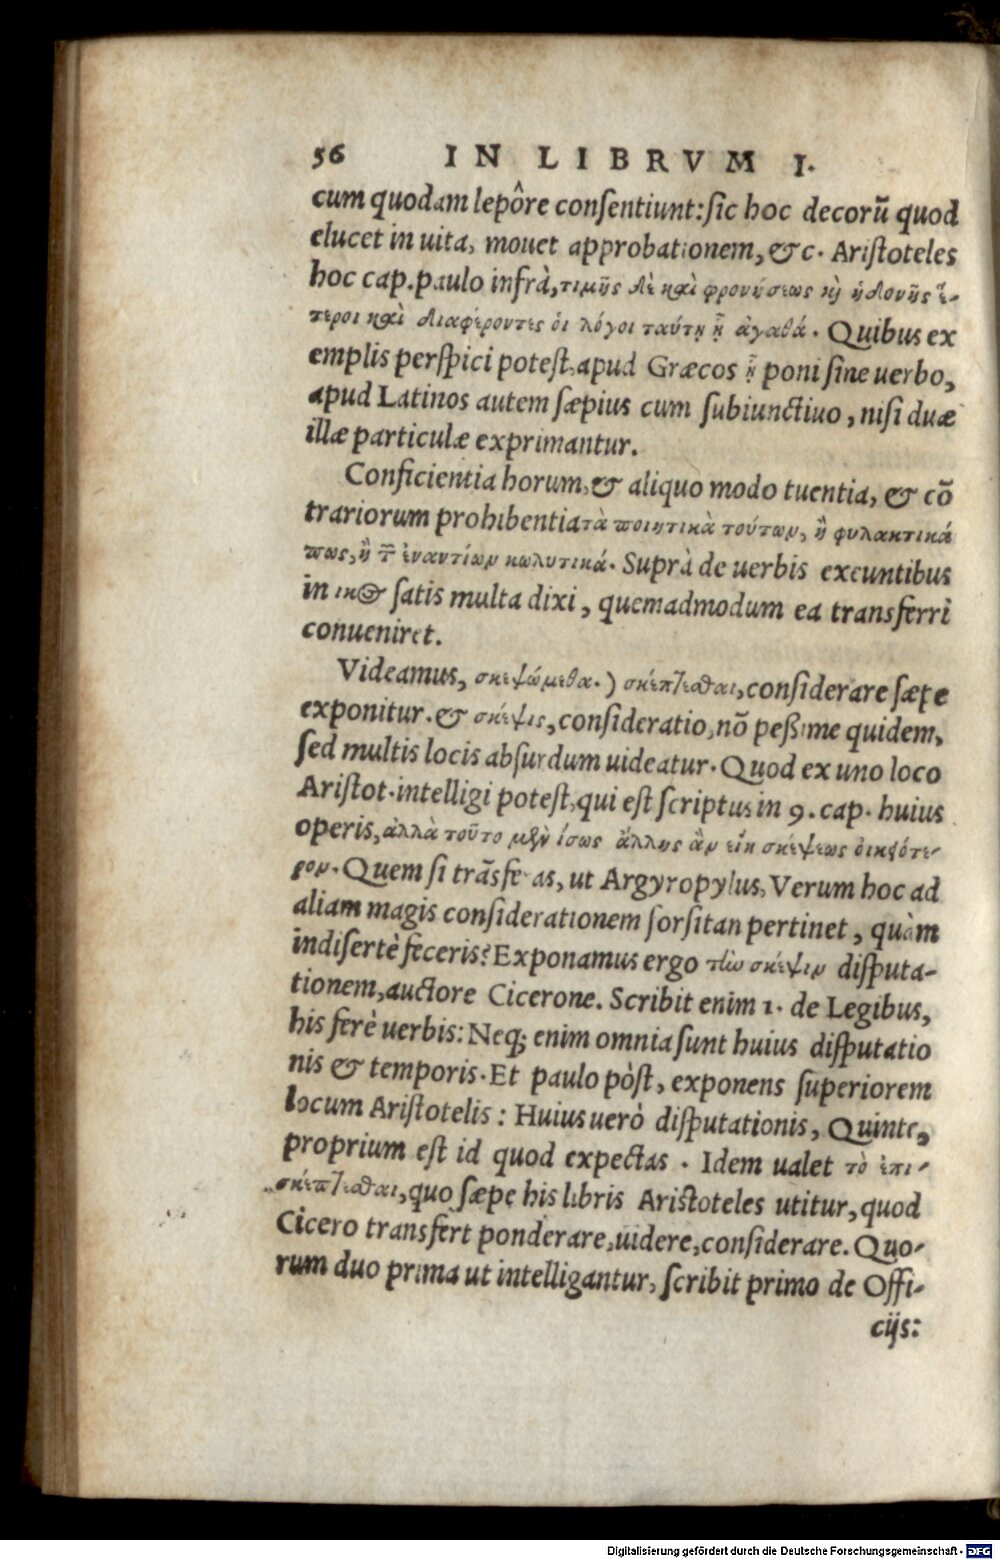 56 IN LIBRVM I.
cum quodam lepôre conſentiunt: ſic hoc decorū quod
elucet in uita, mouet approbationem, &c. Ariſtoteles
hoc cap. paulo infrà, τιμῆς δὲ καὶ φρονήσεως κ̀ ἡδονῆς ἕ-
τεροι καὶ διαφέροντες οἱ λόγοι ταύτῃ ᾗ ἀγαθά. Quibus ex
emplis perſpici poteſt, apud Græcos ᾗ poni ſine uerbo,
apud Latinos autem ſæpius cum ſubiunctiuo, niſi duæ
illæ particulæ exprimantur.
Conficientia horum, & aliquo modo tuentia, & cō
trariorum prohibentia τὰ ποιητικὰ τούτων, ἢ φυλακτικά
πως, ἢ τ̃ ἐναντίων κωλυτικά. Suprà de uerbis exeuntibus
in ικος ſatis multa dixi, quemadmodum ea transferri
conueniret.
Videamus, σκεψώμεθα.) σκέπτεσθαι, conſiderare ſæpe
exponitur. & σκέψις, conſideratio, nō peßime quidem,
ſed multis locis abſurdum uideatur. Quod ex uno loco
Ariſtot. intelligi poteſt, qui eſt ſcriptus in 9. cap. huius
operis, ἀλλὰ τοῦτο μὲν ἴσως ἄλλης ἂν εἴη σκέψεως οἰκειότε-
ρον. Quem ſi trāsferas, ut Argyropylus, Verum hoc ad
aliam magis conſiderationem forſitan pertinet, quàm
indiſertè feceris? Exponamus ergo τὴν σκέψιν diſputa-
tionem, auctore Cicerone. Scribit enim 1. de Legibus,
his ferè uerbis: Neq; enim omnia ſunt huius diſputatio
nis & temporis. Et paulo pòſt, exponens ſuperiorem
locum Ariſtotelis: Huius uerò diſputationis, Quinte,
proprium eſt id quod expectas. Idem ualet τὸ ἐπι-
σκέπτεσθαι, quo ſæpe his libris Ariſtoteles utitur, quod
Cicero transfert ponderare, uidere, conſiderare. Quo-
rum duo prima ut intelligantur, ſcribit primo de Offi-
cijs:
Digitalisierung gefördert durch die Deutsche Forschungsgemeinschaft - DFG